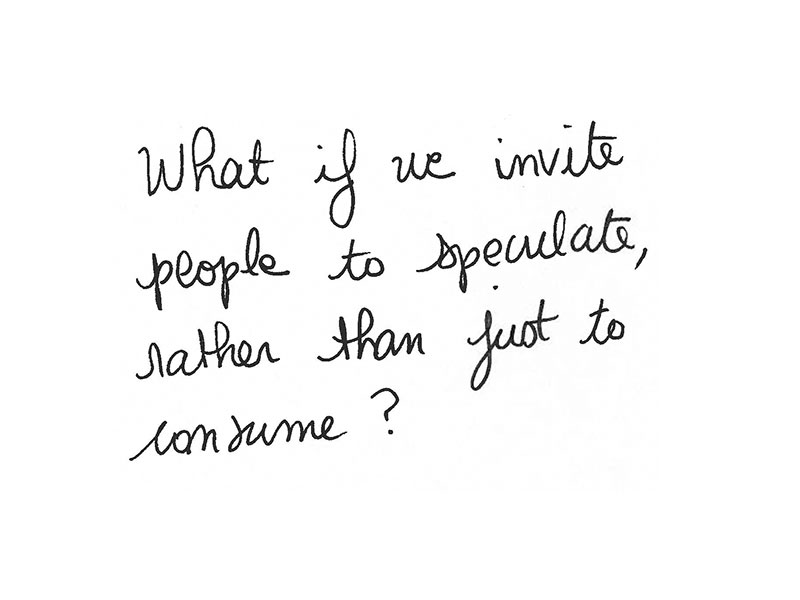 What if we invite
people to speculate,
rather than just to
consume ?